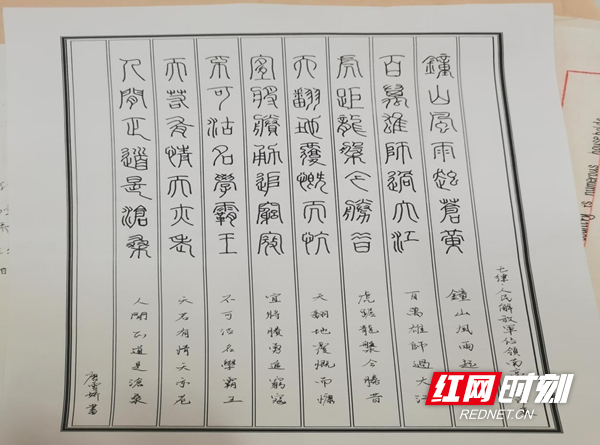 七律人民解放軍佔領南
鐘山風雨起蒼黃
百萬雄師過大江
虎距龍盤今勝昔
天翻地覆慨而慷
宜將賸勇追窮寇
不可沽名學霸王
天若有情天亦老
人間正道是滄桑
鐘山風雨起
百萬雄師過大江
虎踞龍盤今勝昔
天翻地覆慨而慷
宜將賸勇追窮寇
不可沽名學霸王
天若有情天亦老
人間正道是滄桑
書
红网时刻
REDNET.CN